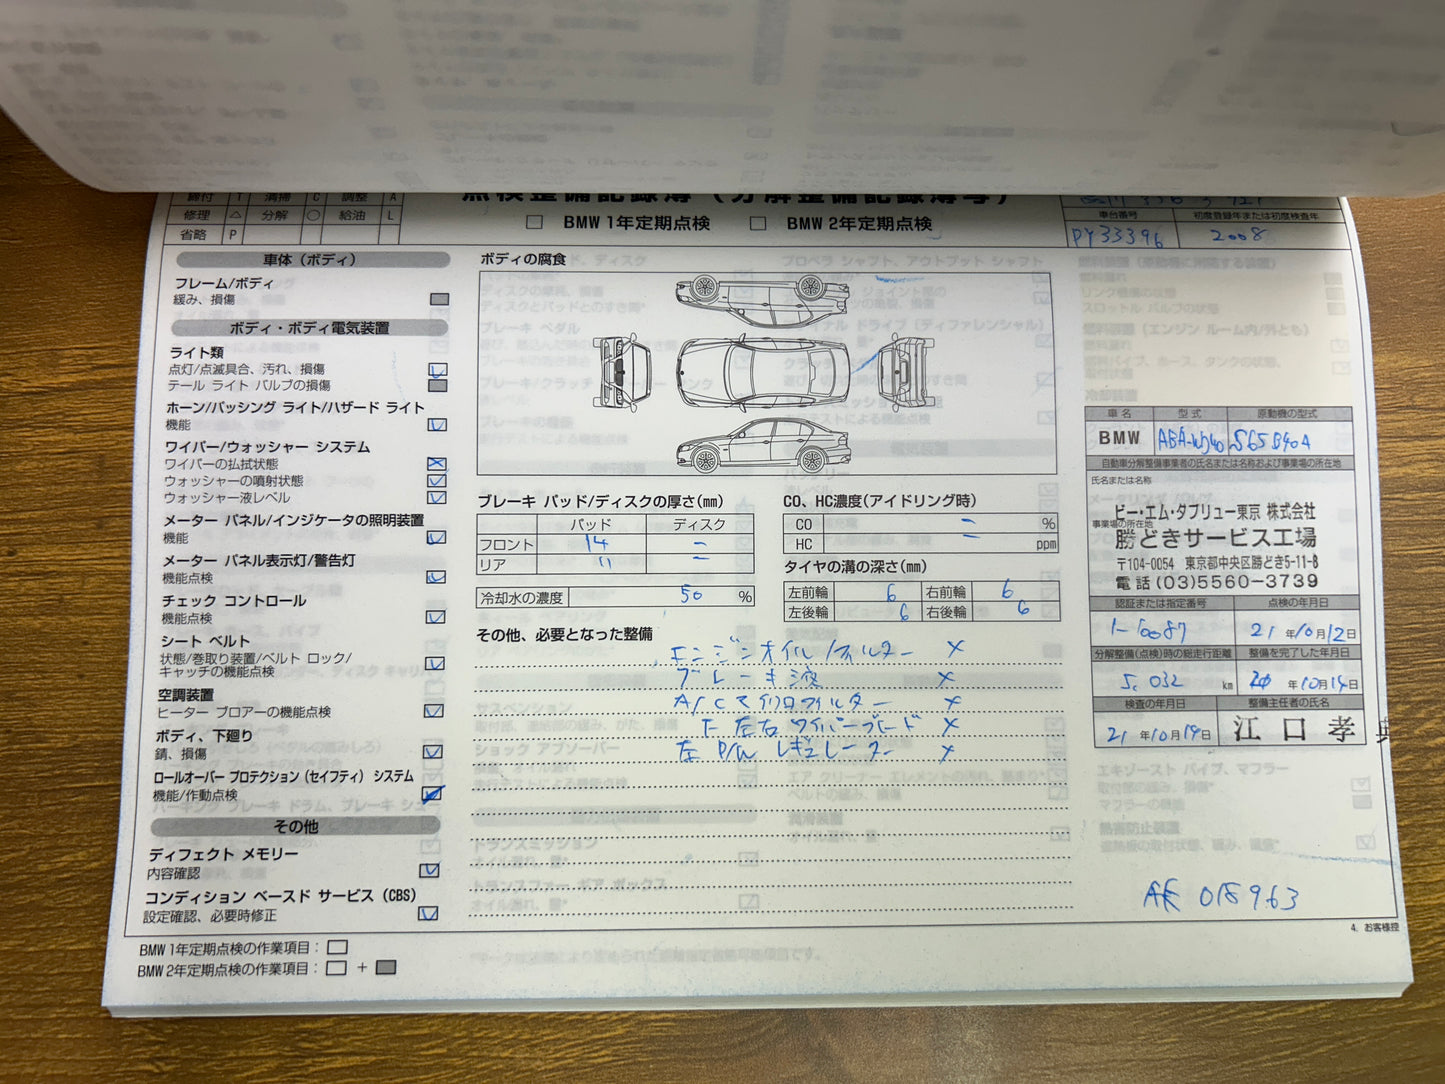 締付 T 清掃 C 調整 A
修理 △ 分解 ○ 給油 L
省略 P
点検整備記録簿（分解整備記録簿写）
BMW 1年定期点検 BMW 2年定期点検
車台番号 初度登録年または初度検査年
PY33396 2008
車体（ボディ）
フレーム/ボディ
緩み、損傷
ボディ・ボディ電気装置
ライト類
点灯/点滅具合、汚れ、損傷
テール ライト バルブの損傷
ホーン/パッシング ライト/ハザード ライト
機能
ワイパー/ウォッシャー システム
ワイパーの払拭状態
ウォッシャーの噴射状態
ウォッシャー液レベル
メーター パネル/インジケータの照明装置
機能
メーター パネル表示灯/警告灯
機能点検
チェック コントロール
機能点検
シート ベルト
状態/巻取り装置/ベルト ロック/
キャッチの機能点検
空調装置
ヒーター ブロアーの機能点検
ボディ、下廻り
錆、損傷
ロールオーバー プロテクション（セイフティ）システム
機能/作動点検
その他
ディフェクト メモリー
内容確認
コンディション ベースド サービス（CBS）
設定確認、必要時修正
BMW 1年定期点検の作業項目：
BMW 2年定期点検の作業項目： +
ボディの腐食
ブレーキ パッド/ディスクの厚さ(mm)
パッド ディスク
フロント 14 −
リア 〃 −
冷却水の濃度 50 %
CO、HC濃度(アイドリング時)
CO − %
HC − ppm
タイヤの溝の深さ(mm)
左前輪 6 右前輪 6
左後輪 6 右後輪 6
その他、必要となった整備
エンジンオイル/フィルター ×
ブレーキ液 ×
A/Cマイクロフィルター ×
F 左右ワイパーブレード ×
左 P/W レギュレーター ×
車名 型式 原動機の型式
BMW ABA-WJ40 S65B40A
自動車分解整備事業者の氏名または名称および事業場の所在地
氏名または名称
ビー・エム・タブリュー東京 株式会社
事業場の所在地
勝どきサービス工場
〒104-0054 東京都中央区勝どき5-11-8
電話(03)5560−3739
認証または指定番号 点検の年月日
1-6087 21年10月12日
分解整備(点検)時の総走行距離 整備を完了した年月日
5,032 km 年10月14日
検査の年月日 整備主任者の氏名
21年10月19日 江口孝
018963
4. お客様控